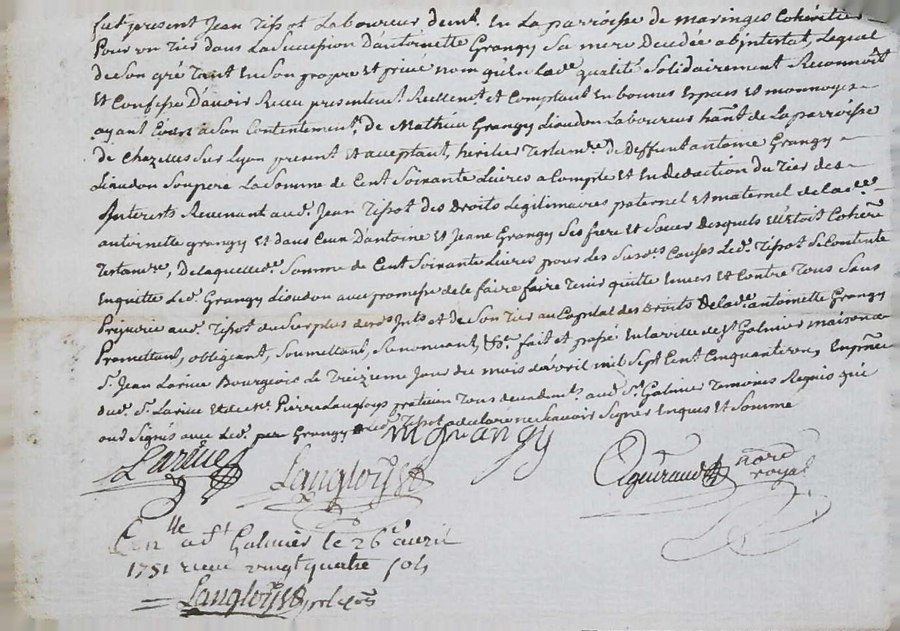 fut présent Jean Tissot Laboureur demt. En La parroisse de maringes Cohéritier
Pour un Tier dans La Succession D'antoinette Grangy Sa mere Decedée abintestat, Lequel
de Son gré Tant En Son propre Et privé nom qu'En Lade. qualité Solidairement Reconnoit
Et Confesse D'avoir Receu presentemt. Reellemt. et Comptant En bonnes Espaces et monnoyes
ayant Cours a Son Contentement, de Mathieu Grangy dioudon Laboureur hant. de La parroisse
de Chazelles Sur Lyon present Et acceptant, héritier Testamre. de deffunt antoine Grangy
Lioudon Son pere La Somme de Cent Soixante Livres a Compte Et En deduction du Tier des
Interests Revenant aud. Jean Tissot des Droits Legitimaires paternel et maternel de lade.
antoinette grangy Et dans Ceux D'antoine Et Jeane Grangy Ses frere Et Soeur desquels Ell'Etoit Cohére.
Testamre., De laquelle de. Somme de Cent Soixante Livres pour les Susdes. Causes Led. Tissot Se Contente
En quitte Led. Grangy Lioudon avec promesse de le faire faire Tenir quitte Envers Et Contre Tous Sans
Préjudice aud. Tissot du Surplus desds. Ints. et de Son Tier au Capital des Droits De lade. antoinette Grangy
Promettant, obligeant, Soumettant, Renonceant, &c. fait et passé En la ville de St. Galmier maison
Sr. Jean Larive Bourgeois Le Treizieme Jour du mois d'avril mil Sept Cent Cinquante un, En pnce.
dud. Sr. Larive Et de Me. Pierre Langloys praticien Tous deux demts. aud. St. Galmier Temoins Requis qui
ont Signés avec Led. Grangy Led. Tissot a declaré ne Scavoir Signer Enquis Et Sommé
Larive
m grangy
Langloys
Ogeuraud nore
royal
Conlle. a St. Galmier le 26e avril
1751 receu vingt quatre sols
Langloys